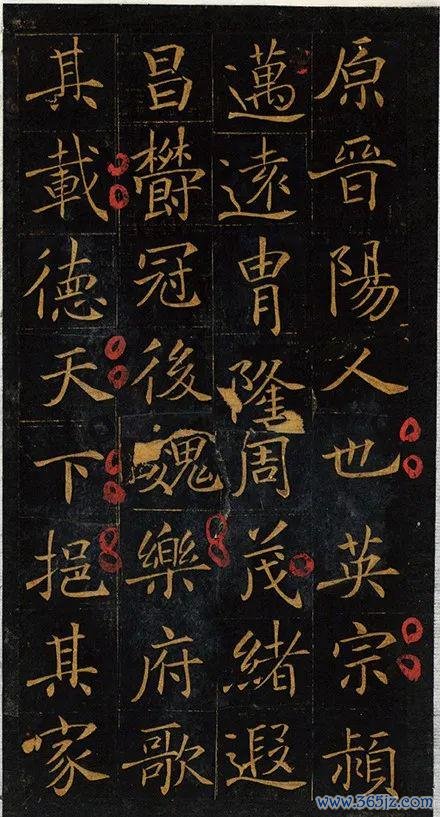 原晉陽人也英宗頴
邁遠胄隆周茂緒遐
昌欝冠後魏樂府歌
其載德天下挹其家
www.365jz.com